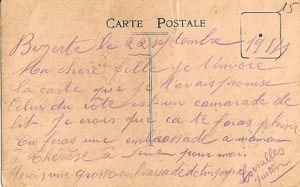 15
CARTE POSTALE
Bizerte le 22 septembre 1914
Ma chère fille je t'envoie
la carte que je t'avais promise
celui du coté est un camarade de
lit. Je crois que ca te feras plaisir
Tu feras une embrassade a maman
a Thérèse a pour moi
Recois une grosse embrassade de ton papa